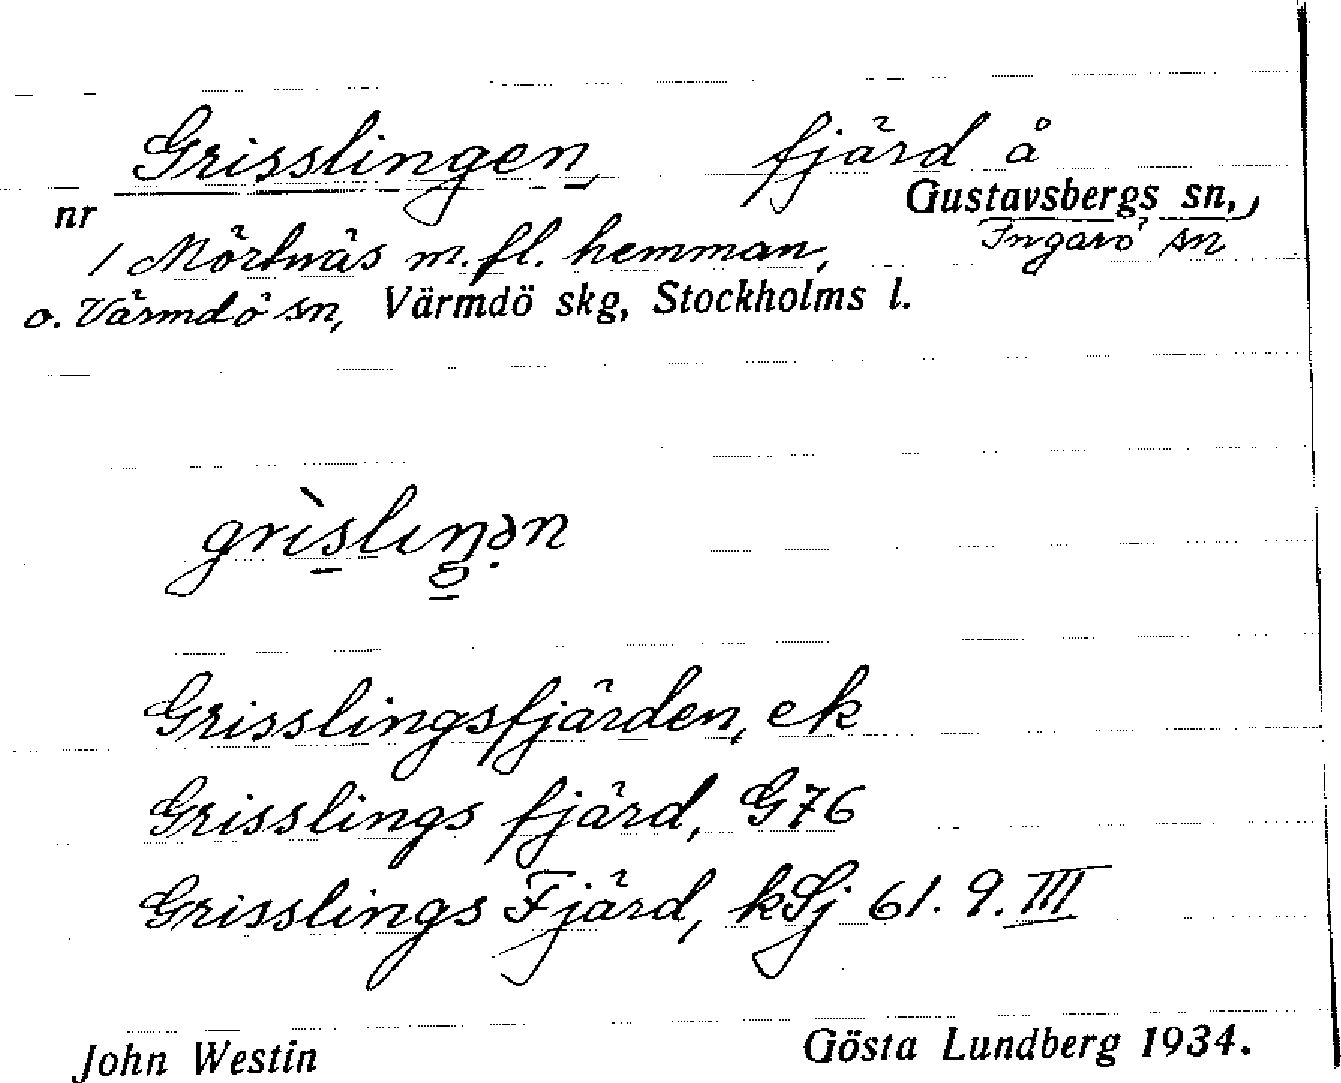 Grisslingen, fjärd å
nr Gustavsbergs sn.,
/ Mörtnäs m. fl. hemman, Ingarö sn
o. Värmdö sn, Värmdö skg, Stockholms l.
Grisslingsfjärden, ek
Grisslings fjärd, G76
Grisslings Fjärd, kSj 61. 9. III
John Westin Gösta Lundberg 1934.